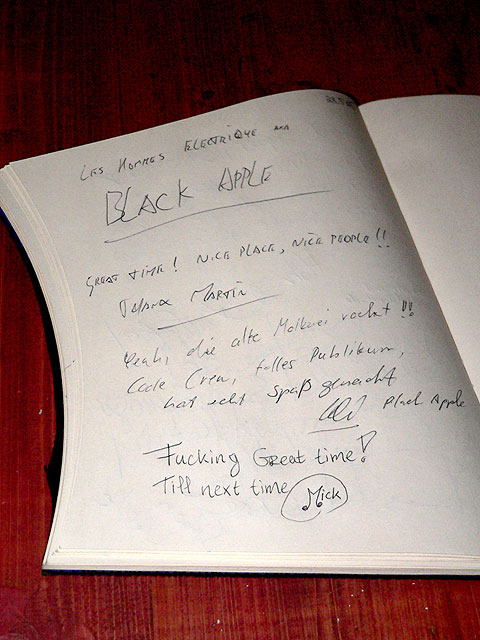 LES HOMMES ELECTRIQUE AKA
BLACK APPLE
GREAT TIME! NICE PLACE, NICE PEOPLE!!
MARTIN
Yeah, die alte Molkerei rockt!!
Coole Crew, tolles Publikum,
hat echt Spaß gemacht
Black Apple
Fucking Great time!
Till next time Mick